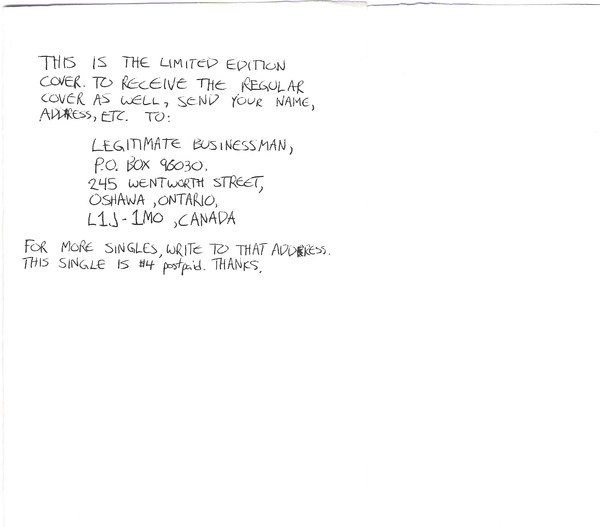 THIS IS THE LIMITED EDITION
COVER. TO RECEIVE THE REGULAR
COVER AS WELL, SEND YOUR NAME,
ADDRESS, ETC. TO:
LEGITIMATE BUSINESSMAN,
P.O. BOX 96030.
245 WENTWORTH STREET,
OSHAWA, ONTARIO,
L1J-1M0, CANADA
FOR MORE SINGLES, WRITE TO THAT ADDRESS.
THIS SINGLE IS #4 postpaid. THANKS.